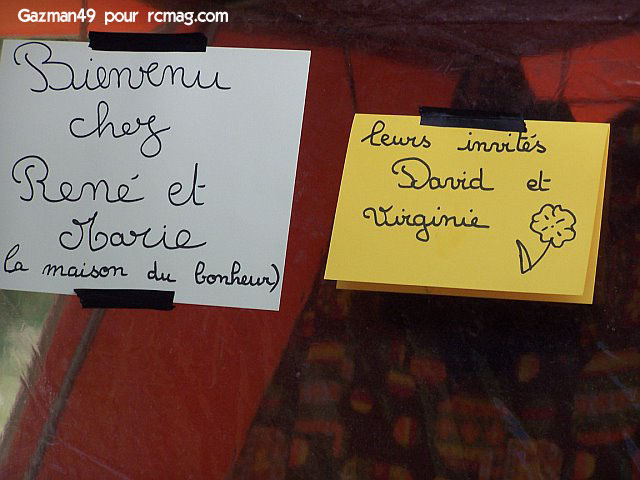 Gazman49 pour rcmag.com
Bienvenu
chez
René et
Marie
(la maison du bonheur)
leurs invités
David et
Virginie